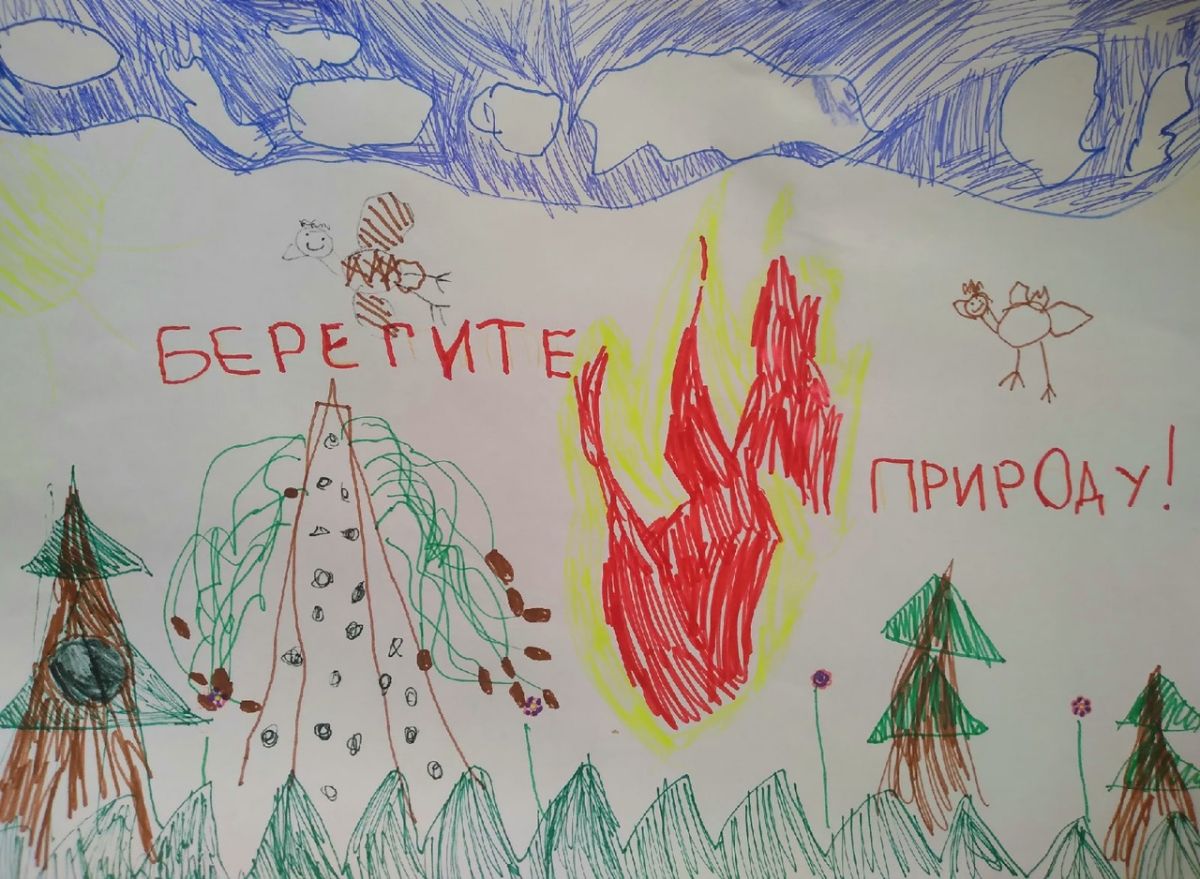 БЕРЕГИТЕ
ПРИРОДУ!